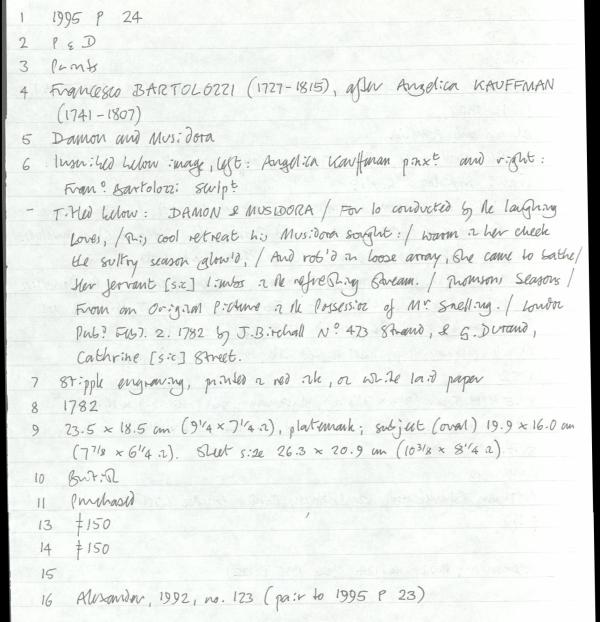 1 1995 P 24
2 P & D
3 Prints
4 Francesco BARTOLOZZI (1727-1815), after Angelica KAUFFMAN
(1741-1807)
5 Damon and Musidora
6 Inscribed below image, left: Angelica Kauffman pinxt. and right:
Franº Bartolozzi Sculpt.
- Titled below: DAMON & MUSIDORA / For lo conducted by the laughing
Loves, / This cool retreat his Musidora sought: / warm in her cheek
the sultry season glow'd, / And rob'd in loose array, she came to bathe /
Her fervant [sic] limbs in the refreshing stream. / Thomsons Seasons /
From an Original Picture in the Possession of Mr Snelling. / London
Pubd Feby. 2. 1782 by J. Birchall Nº 473 Strand, & G. Durand,
Cathrine [sic] Street.
7 Stipple engraving, printed in red ink, on white laid paper
8 1782
9 23.5 x 18.5 cm (9 1/4 x 7 1/4 in), platemark; subject (oval) 19.9 x 16.0 cm
(7 7/8 x 6 1/4 in). Sheet size 26.3 x 20.9 cm (10 3/8 x 8 1/4 in).
10 British
11 Purchased
13 £150
14 £150
15
16 Alexander, 1992, no. 123 (pair to 1995 P 23)